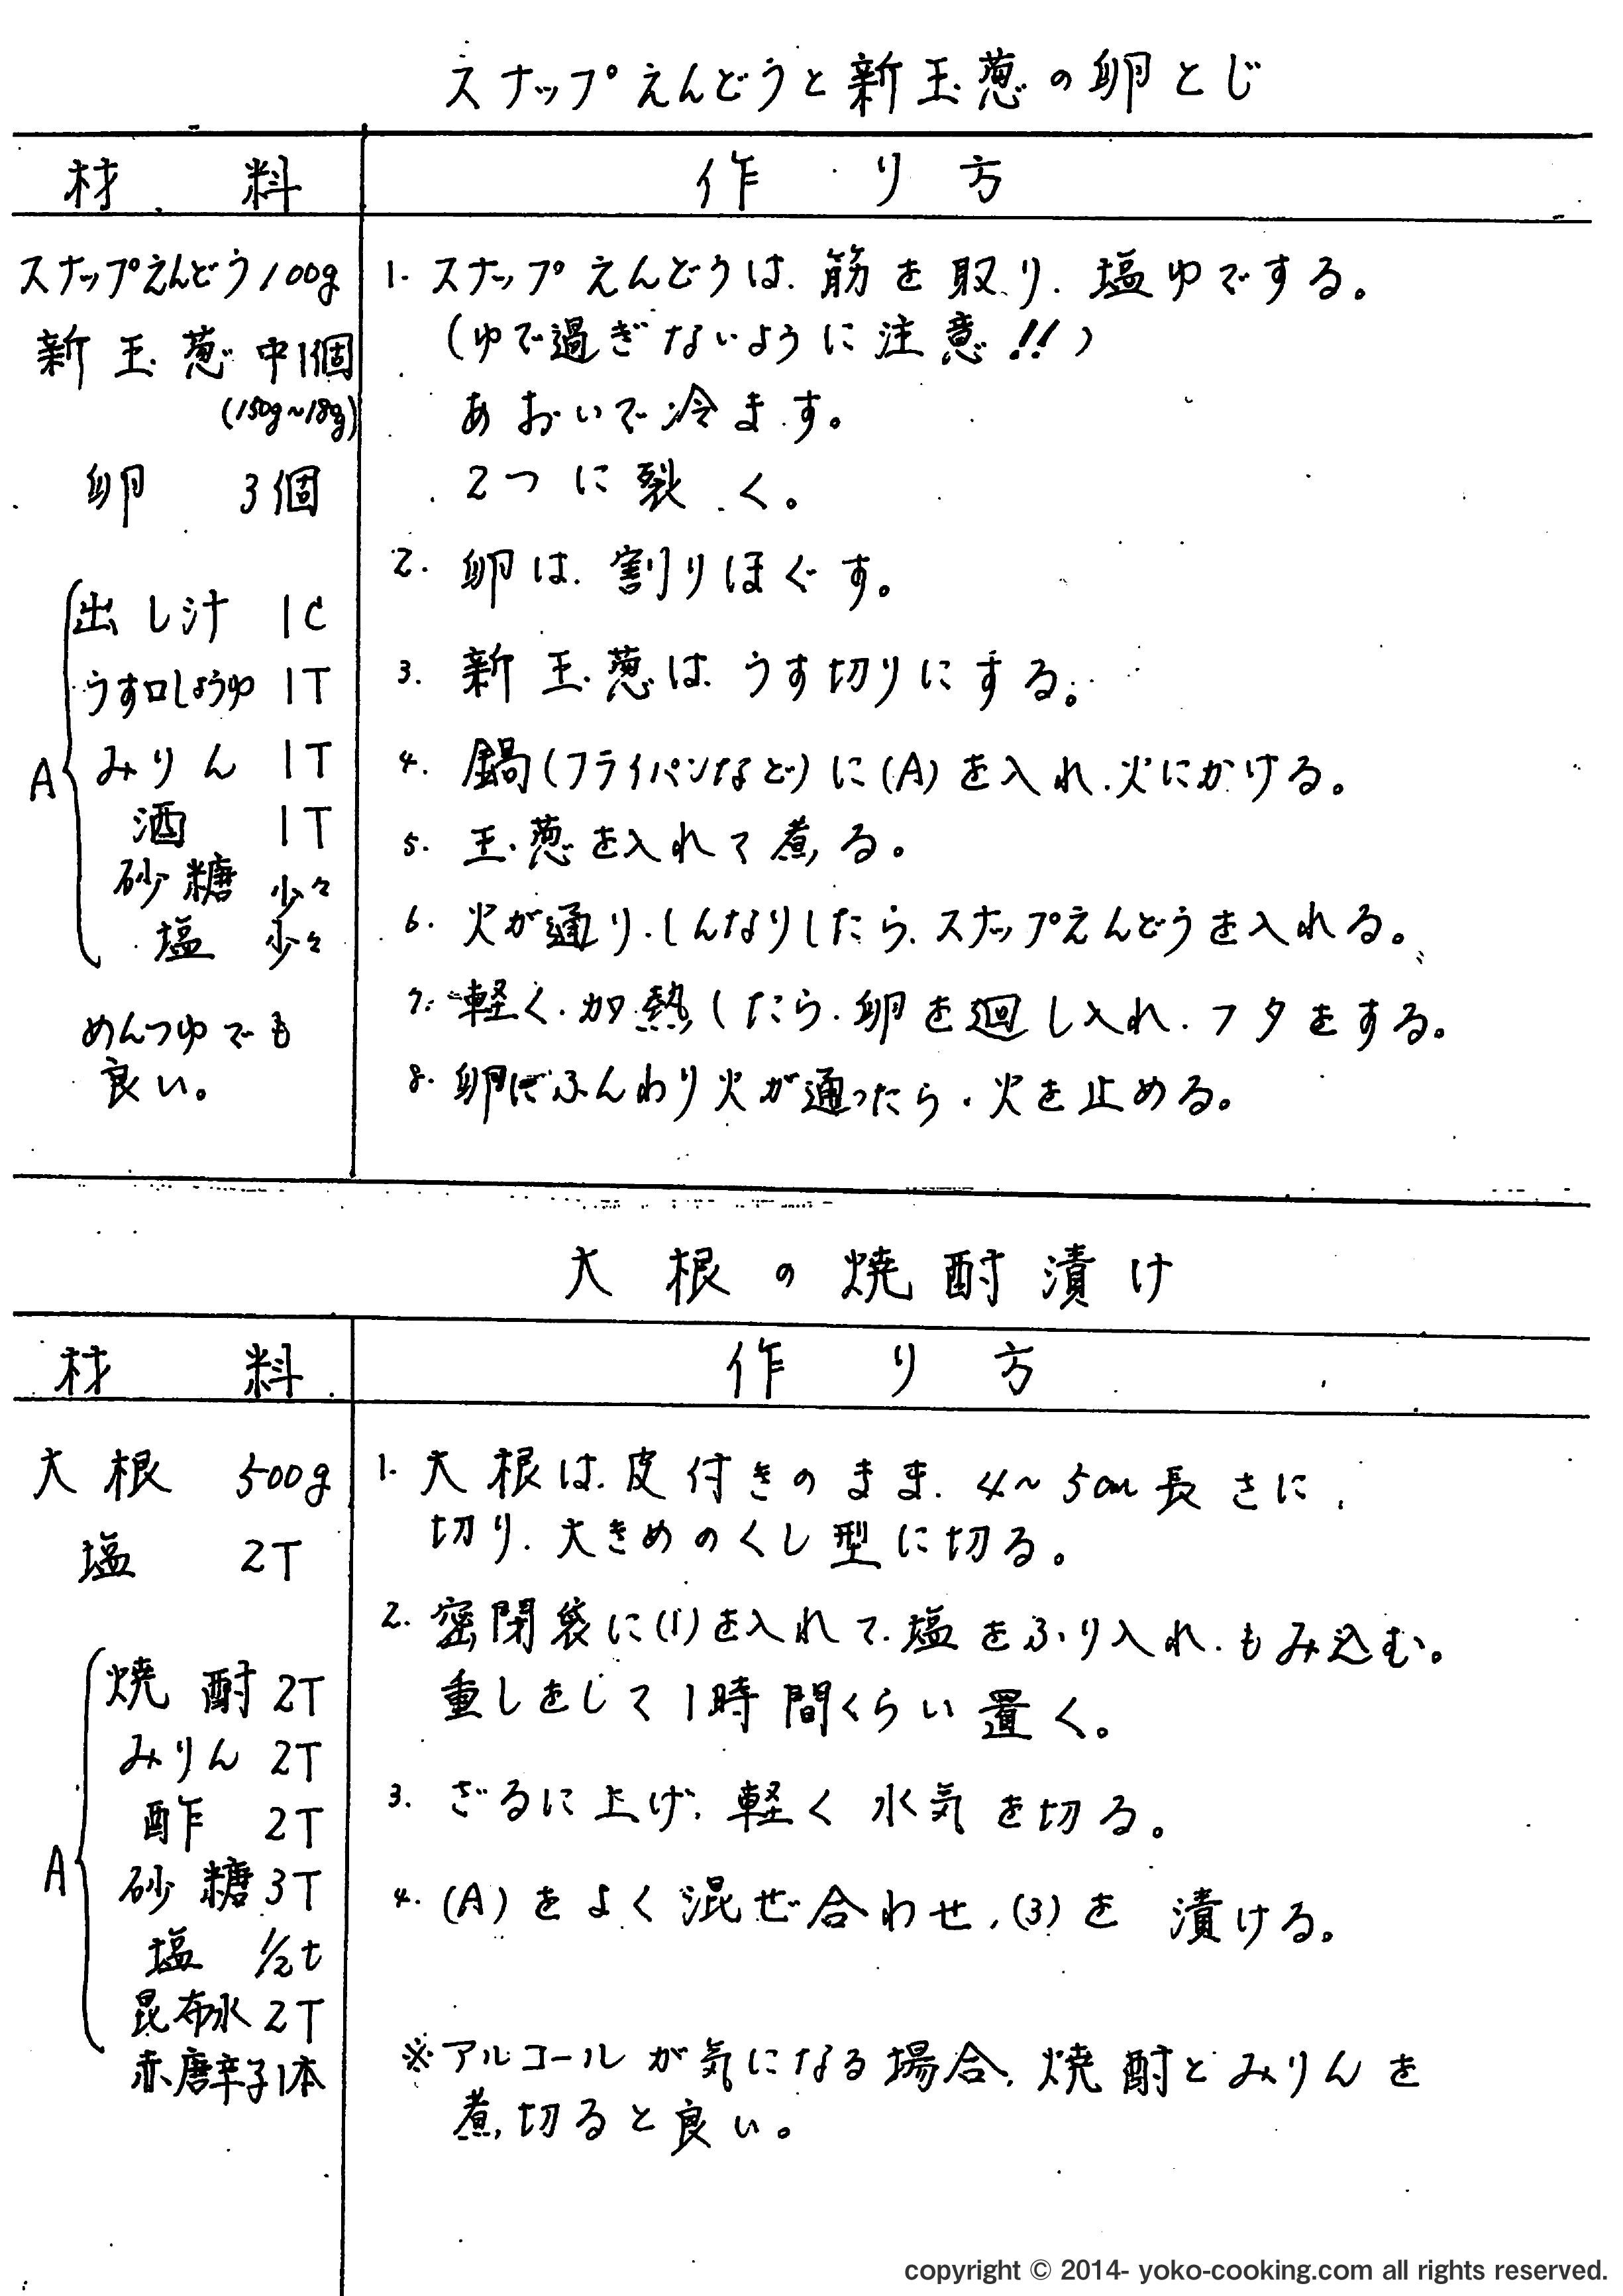 スナップえんどうと新玉葱の卵とじ
材料
作り方
スナップえんどう 100g
新玉葱 中1個
(150g~18g)
卵 3個
A
出し汁 1C
うす口しょうゆ 1T
みりん 1T
酒 1T
砂糖 少々
塩 少々
めんつゆでも
良い。
1. スナップえんどうは、筋を取り、塩ゆでする。
(ゆで過ぎないように注意!!)
あおいで冷ます。
2つに裂く。
2. 卵は、割りほぐす。
3. 新玉葱は、うす切りにする。
4. 鍋(フライパンなど)に(A)を入れ、火にかける。
5. 玉葱を入れて煮る。
6. 火が通り、しんなりしたら、スナップえんどうを入れる。
7. 軽く、加熱したら、卵を廻し入れ、フタをする。
8. 卵にふんわり火が通ったら、火を止める。
大根の焼酎漬け
材料
作り方
大根 500g
塩 2T
A
焼酎 2T
みりん 2T
酢 2T
砂糖 3T
塩 1/2t
昆布水 2T
赤唐辛子1本
1. 大根は、皮付きのまま、4~5cm長さに、
切り、大きめのくし型に切る。
2. 密閉袋に(1)を入れて、塩をふり入れ、もみ込む。
重しをして1時間くらい置く。
3. ざるに上げ、軽く水気を切る。
4. (A)をよく混ぜ合わせ、(3)を漬ける。
※アルコールが気になる場合、焼酎とみりんを
煮切ると良い。
copyright © 2014- yoko-cooking.com all rights reserved.